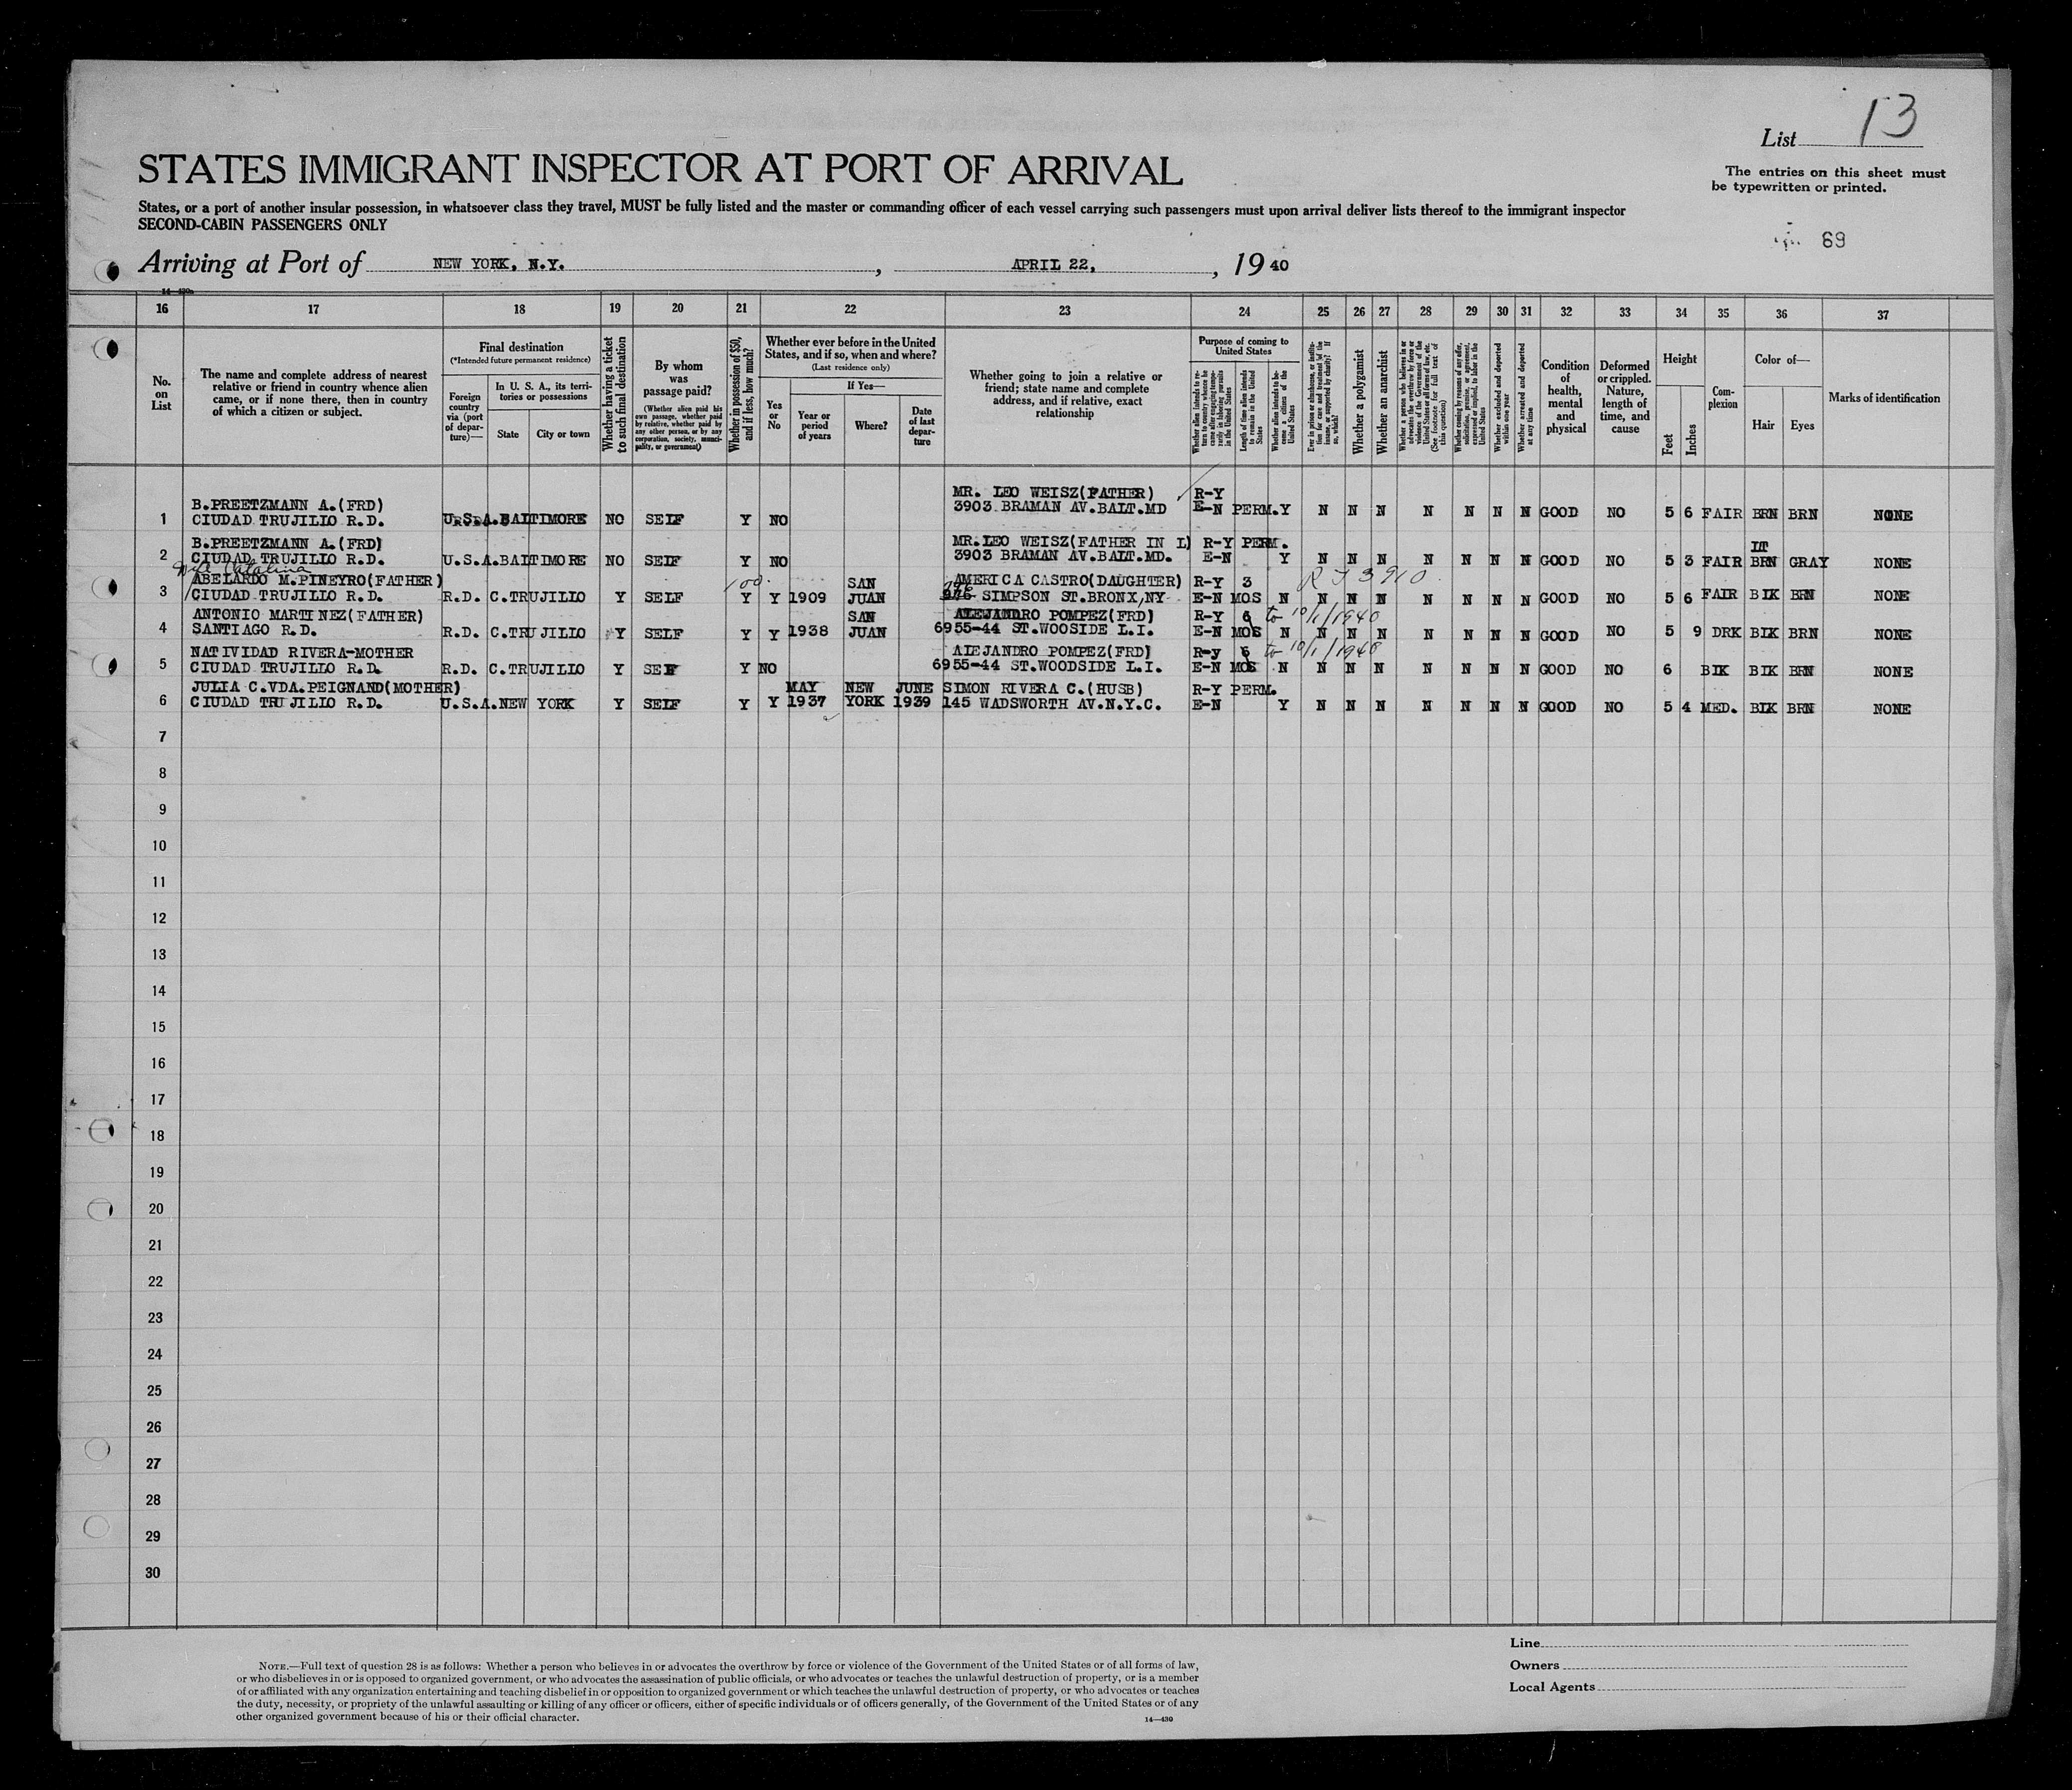 13
List
The entries on this sheet must
be typewritten or printed.
STATES IMMIGRANT INSPECTOR AT PORT OF ARRIVAL
States, or a port of another insular possession, in whatsoever class they travel, MUST be fully listed and the master or commanding officer of each vessel carrying such passengers must upon arrival deliver lists thereof to the immigrant inspector
SECOND-CABIN PASSENGERS ONLY
69
Arriving at Port of NEW YORK, N.Y. , APRIL 22, , 19 40
16 17 18 19 20 21 22 23 24 25 26 27 28 29 30 31 32 33 34 35 36 37
No. on List
The name and complete address of nearest
relative or friend in country whence alien
came, or if none there, then in country
of which a citizen or subject.
Final destination
(*Intended future permanent residence)
Foreign country via (port of departure)—
In U. S. A., its territories or possessions
State
City or town
Whether having a ticket to such final destination
By whom was passage paid?
(Whether alien paid his own passage, whether paid by relative, whether paid by any other person, or by any corporation, society, municipality, or government)
Whether in possession of $50, and if less, how much?
Whether ever before in the United States, and if so, when and where?
(Last residence only)
Yes or No
If Yes—
Year or period of years
Where?
Date of last departure
Whether going to join a relative or
friend; state name and complete
address, and if relative, exact
relationship
Purpose of coming to United States
Length of time alien intends to remain in the United States
Whether alien intends to become a citizen of the United States
Whether a polygamist
Whether an anarchist
Whether excluded and deported within one year
Whether arrested and deported at any time
Condition of health, mental and physical
Deformed or crippled. Nature, length of time, and cause
Height
Feet
Inches
Complexion
Color of—
Hair
Eyes
Marks of identification
B.PREETZMANN A.(FRD) MR. LEO WEISZ(FATHER) R-Y
1 CIUDAD TRUJILLO R.D. U.S.A.BALTIMORE NO SELF Y NO 3903 BRAMAN AV.BALT.MD E-N PERM.Y N N N N N N N GOOD NO 5 6 FAIR BRN BRN NONE
B.PREETZMANN A.(FRD) MR.LEO WEISZ(FATHER IN L) R-Y PERM. LT
2 CIUDAD TRUJILLO R.D. U.S.A.BALTIMORE NO SELF Y NO 3903 BRAMAN AV.BALT.MD. E-N Y N N N N N N N GOOD NO 5 3 FAIR BRN GRAY NONE
Catalina
ABELARDO M.PINEYRO(FATHER) 100. SAN AMERICA CASTRO(DAUGHTER) R-Y 3
3 CIUDAD TRUJILLO R.D. R.D. C.TRUJILLO Y SELF Y Y 1909 JUAN SIMPSON ST.BRONX,NY E-N MOS N N N N N N N N GOOD NO 5 6 FAIR BLK BRN NONE
ANTONIO MARTINEZ(FATHER) SAN ALEJANDRO POMPEZ(FRD) R-Y 6 to 10/1/1940
4 SANTIAGO R.D. R.D. C.TRUJILLO Y SELF Y Y 1938 JUAN 6955-44 ST.WOOSIDE L.I. E-N MOS N N N N N N N N GOOD NO 5 9 DRK BLK BRN NONE
NATIVIDAD RIVERA-MOTHER ALEJANDRO POMPEZ(FRD) R-y 6 to 10/1/1940
5 CIUDAD TRUJILLO R.D. R.D. C.TRUJILLO Y SELF Y NO 6955-44 ST.WOODSIDE L.I. E-N MOS N N N N N N N N GOOD NO 6 BLK BLK BRN NONE
JULIA C.VDA.PEIGNAND(MOTHER) MAY NEW JUNE SIMON RIVERA C.(HUSB) R-Y PERM.
6 CIUDAD TRUJILLO R.D. U.S.A.NEW YORK Y SELF Y Y 1937 YORK 1939 145 WADSWORTH AV.N.Y.C. E-N Y N N N N N N N GOOD NO 5 4 MED. BLK BRN NONE
7
8
9
10
11
12
13
14
15
16
17
18
19
20
21
22
23
24
25
26
27
28
29
30
Line
Owners
Local Agents
NOTE.—Full text of question 28 is as follows: Whether a person who believes in or advocates the overthrow by force or violence of the Government of the United States or of all forms of law,
or who disbelieves in or is opposed to organized government, or who advocates the assassination of public officials, or who advocates or teaches the unlawful destruction of property, or is a member
of or affiliated with any organization entertaining and teaching disbelief in or opposition to organized government or which teaches the unlawful destruction of property, or who advocates or teaches
the duty, necessity, or propriety of the unlawful assaulting or killing of any officer or officers, either of specific individuals or of officers generally, of the Government of the United States or of any
other organized government because of his or their official character.
14—430